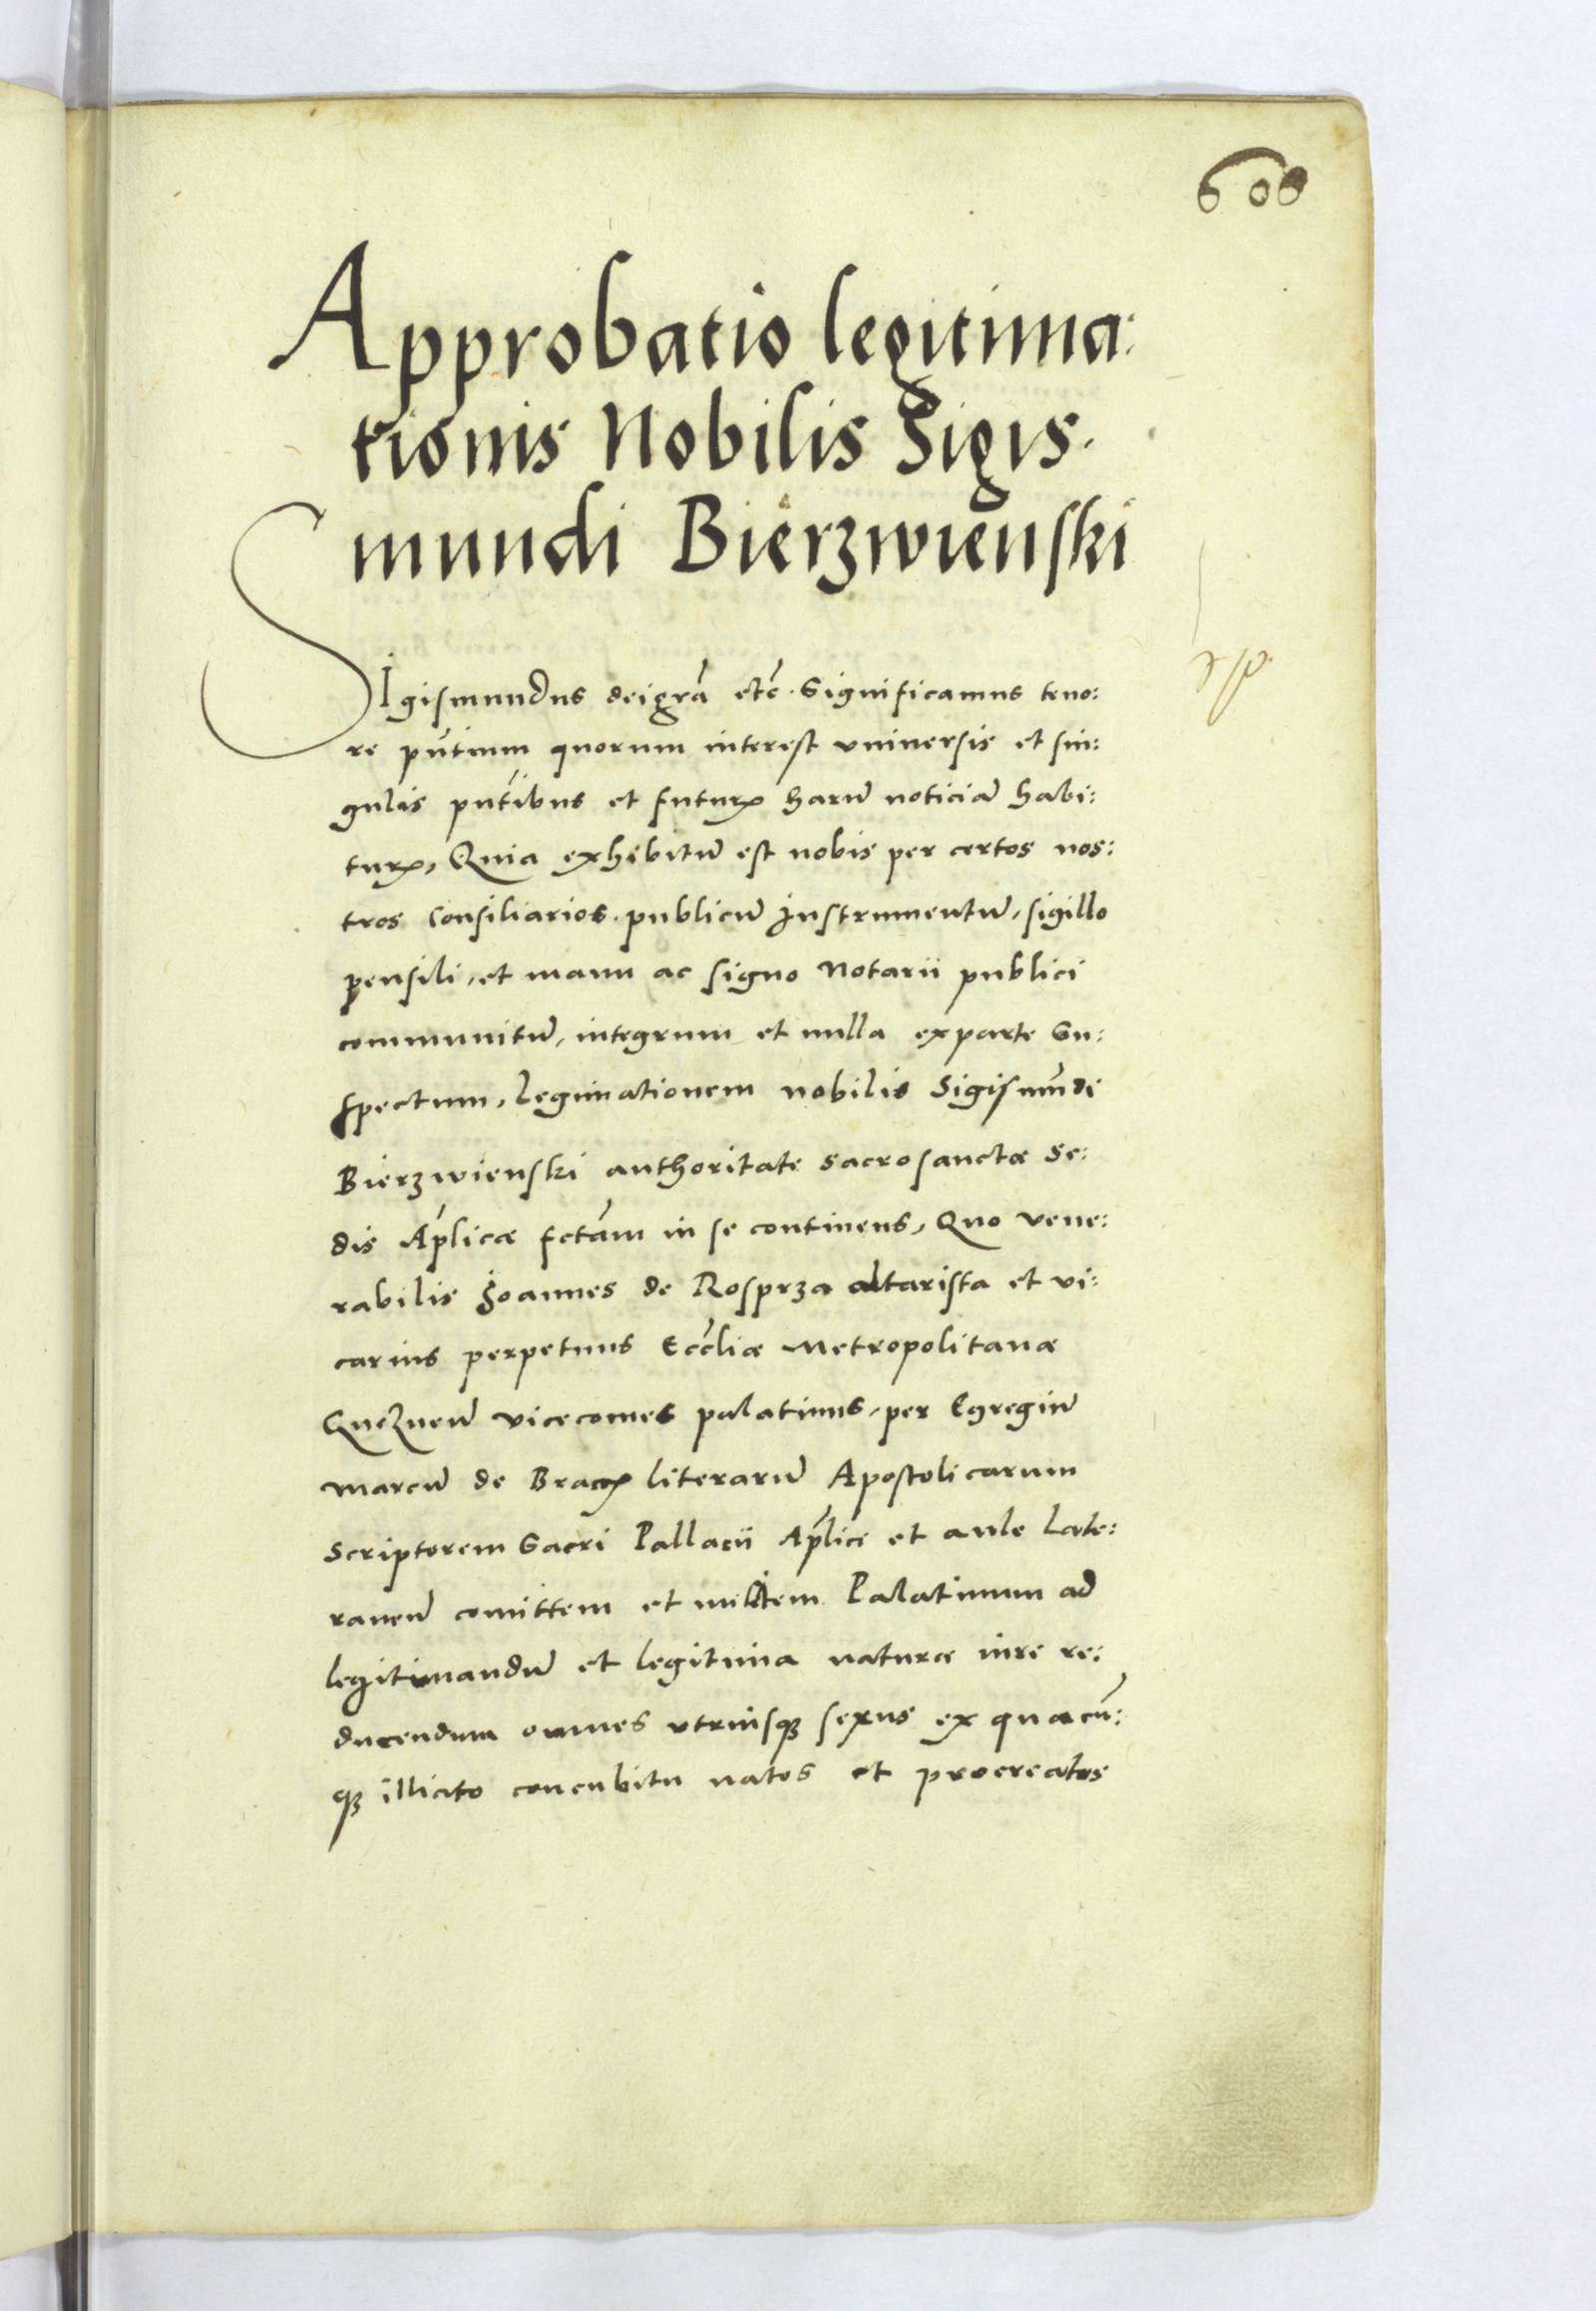 606
Approbatio legitima:
tionis Nobilis Sigis.
mundi Bierzwienski
SIgismundus dei grã etc̃. Significamus teno:
re pñtium quorum interest vniuersis et sin:
gulis pñtibus et futurꝝ harũ noticiã habi:
turꝝ, Quia exhibitũ est nobis per certos nos:
tros Consiliarios. publicũ Instrumentũ, sigillo
pensili, et manu ac signo Notarii publici
communitũ, integrum et nulla ex parte su:
spectum, Legimationem nobilis Sigismũdi
Bierzwienski authoritate sacrosanctæ se:
dis Aplicæ fctãm in se continens, Quo vene:
rabilis Joannes de Rosprza altarista et vi:
carius perpetuus Eccliæ Metropolitanæ
vicecomes palatinus, per Egregiũ
Marcũ de literarũ Apostolicarum
Scriptorem Sacri Pallacii Aplici et aule Late:
raneñ comittem et militem Palatinum ad
legitimandũ et legitima naturæ iure re:
ducendum omnes vtriusqꝫ sexus ex quacũ:
qꝫ illicito concubitu natos et procreatos